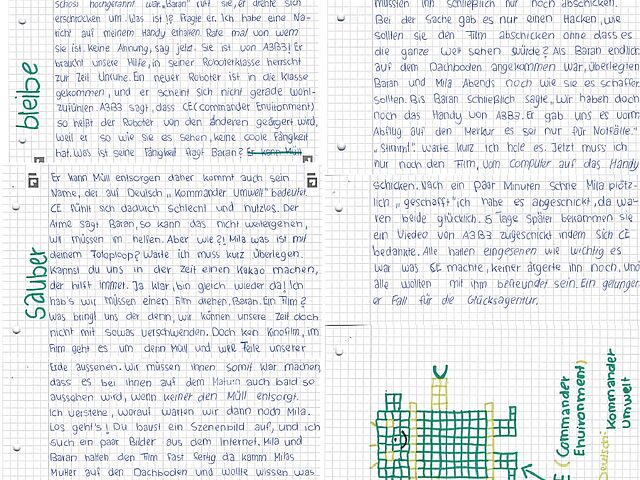 schoss hochgerannt war. "Baran" rief sie, er drehte sich
erschrocken um. Was ist!? Fragte er. Ich habe eine Na-
richt auf meinem Handy erhalten. Rate mal von wem
sie ist. Keine Ahnung, sag jetz. Sie ist von A3B3! Er
braucht unsere Hilfe, in seiner Roboterklasse herrscht
zur Zeit Unruhe. Ein neuer Roboter ist in die Klasse
gekommen, und er scheint sich nicht gerade wohl-
zufühlen. A3B3 sagt, dass CE (Commander Environment)
so heißt der Roboter von den anderen geärgert wird,
weil er so wie sie es sehen, keine coole Fähigkeit
hat. Was ist seine Fähigkeit fragt Baran? Er kann Müll
Er kann Müll entsorgen daher kommt auch sein
Name, der auf Deutsch "Kommander Umwelt" bedeutet.
CE fühlt sich dadurch schlecht und nutzlos. Der
Arme sagt Baran, so kann das nicht weitergehen,
wir müssen im helfen. Aber wie?! Mila was ist mit
deinem Fotoloop? Warte ich muss kurz überlegen.
Kannst du uns in der Zeit einen Kakao machen,
der hilft immer. Ja klar, bin gleich wieder da! Ich
hab's wir müssen einen Film drehen, Baran. Ein Film?
was bringt uns der denn, wir können unsere Zeit doch
nicht mit sowas verschwenden. Doch kein Kinofilm, im
Film geht es um denn Müll und wie Teile unserer
Erde aussehen. Wir müssen ihnen somit klar machen,
dass es bei ihnen auf dem auch bald so
aussehen wird, wenn keiner den Müll entsorgt.
Ich verstehe, worauf warten wir dann noch Mila.
Los geht's! Du baust ein Szenenbild auf, und ich
such ein paar Bilder aus dem Internet. Mila und
Baran hatten den Film fast fertig da kamm Milas
Mutter auf den Dachboden und wollte wissen was
bleibe
sauber
müssten ihn schließlich nur noch abschicken.
Bei der Sache gab es nur einen Hacken, wie
sollen sie den Film abschicken ohne dass es
die ganze Welt sehen würde? Als Baran endlich
auf dem Dachboden angekommen war, überlegten
Baran und Mila Abends noch wie sie es schaffen
sollten. Bis Baran schließlich sagte, "Wir haben doch
noch das Handy von A3B3. Er gab uns es vorm
Abflug auf den Merkur es sei nur für Notfälle."
"Stimmt" warte kurz ich hole es. Jetzt muss ich
nur noch den Film, vom Computer auf das Handy
schicken. Nach ein paar Minuten schrie Mila plötz-
lich "geschafft" ich habe es abgeschickt, da wa-
ren beide glücklich. 5 Tage später bekommen sie
ein Viedeo von A3B3 zugeschickt indem sich CE
bedankte. Alle hatten eingesehen wie wichtig es
war was CE machte, keiner ärgerte ihn noch, und
alle wollten mit ihm befreundet sein. Ein gelungen
er Fall für die Glücksagentur.
(Commander
Environment)
Deutsch:
Kommander
Umwelt